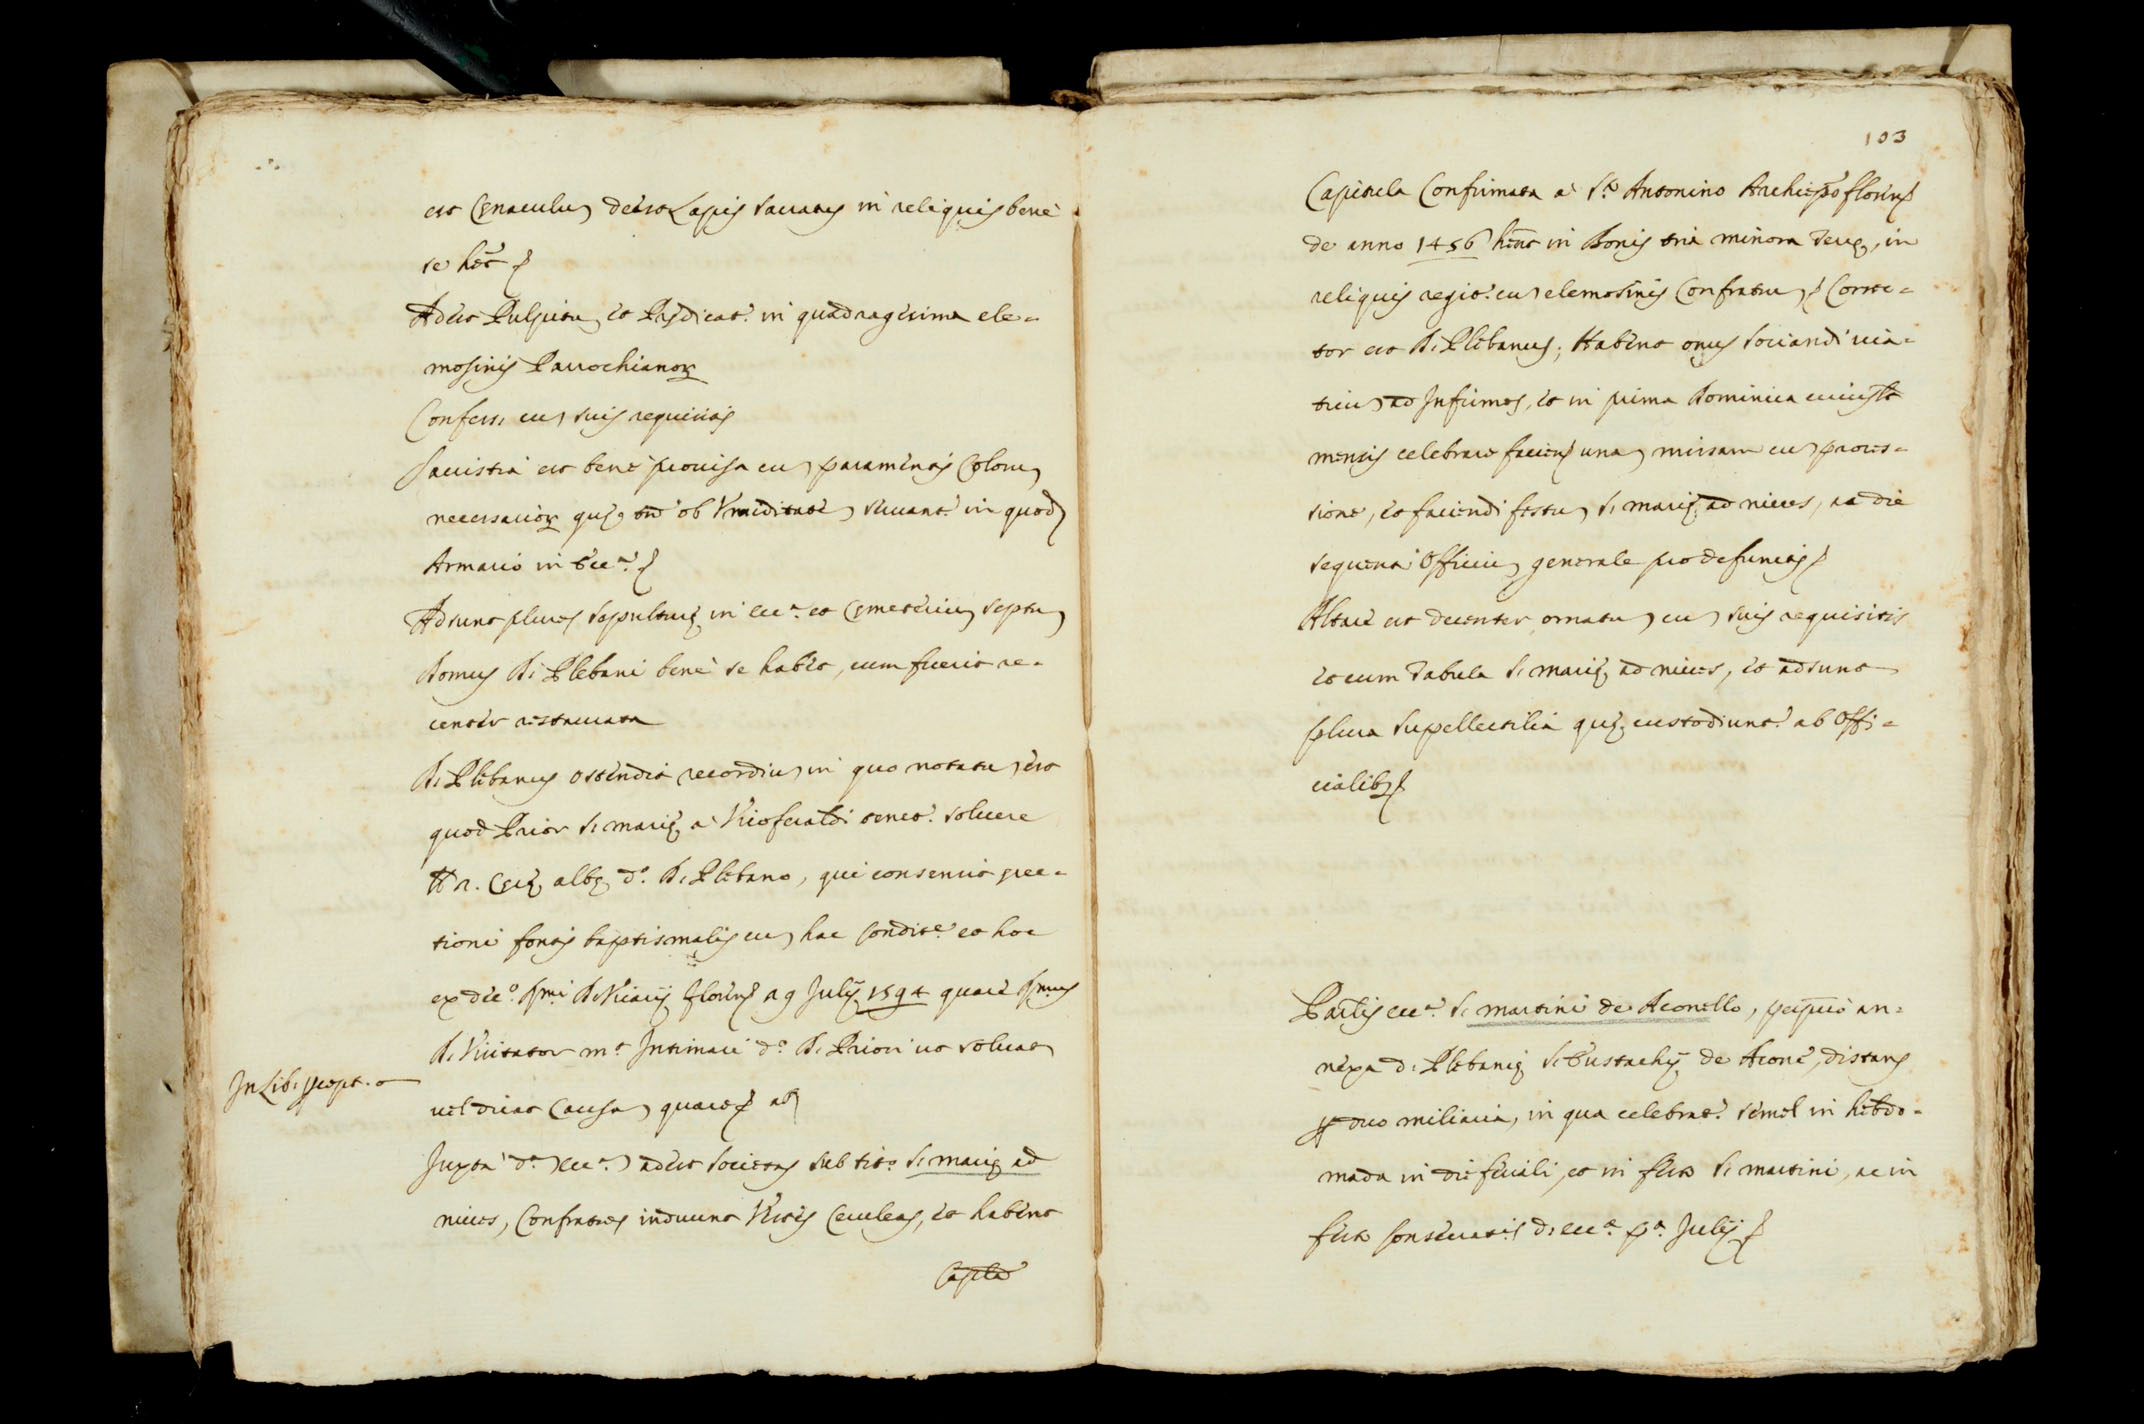 est Cenaculu, deest Lapis sacratus in reliquis bene
se het
Adest Pulpitu, et Predicat. in quadragesima ele-
mosinis Parrochianor
Confess. cu, suis requisitis
Sacristia est bene provisa cu, paramentis Coloru,
necessarior que, tn ob Umiditate, servant. in quod,
Armario in Ecc.a
Adsunt plures sepulture in ecc.a et Cemeteriu, septu,
Domus D. Plebani bene se habet, cum fuerit re-
center restaurata
D. Plebanus ostendit recordiu, in quo notatu, est
quod Prior S. Marie a Vicoferaldi tenet. solvere
tt 2. Cere albe d.o D. Plebano, qui consensit erec-
tioni fontis baptismalis cu, hac condit.e et hoc
ex dec.o Rmi D. Vicarij florens 29 Julij 1594 quare Rmus
D. Visitator m.t Intimari d.o D. Priori ut solvat,
In Lib. precept.
vel dicat Causa, quare
Juxta d.a, ecc.a, adest societas sub tit.o S. Marie ad
nives, Confratres induunt Vestes Ceruleas, et habent
Capla
103
Capitula Confirmata a S.to Antonino Archiepo floren
de anno 1456 hent in Bonis tria minora terre, in
reliquis regit. cu, elemosinis Confratru, Correc-
tor est D. Plebanus; Habent onus sociandi via-
ticu, ad Infirmos, et in prima Dominica cuiuslt
mensis celebrare faciens una, missam cu, proces-
sione, et faciendi festu, S. Marie ad nives, ac die
sequenti Officiu, generale pro defunctis
Altare est decenter ornatu, cu, suis requisitis
et cum Tabula S. Marie ad nives, et adsunt
plura supellectilia que custodiunt. ab Offi-
cialib,
Partis ecc.a S. Martini de Aconello, perpuo an-
nexa d. Plebanie S. Eustachij de Acone, distans
p duo miliaria, in qua celebrat. semel in hebdo-
mada in die feriali, et in festo S. Martini, ac in
festo consecrat.s d. ecc.a p.a Julij